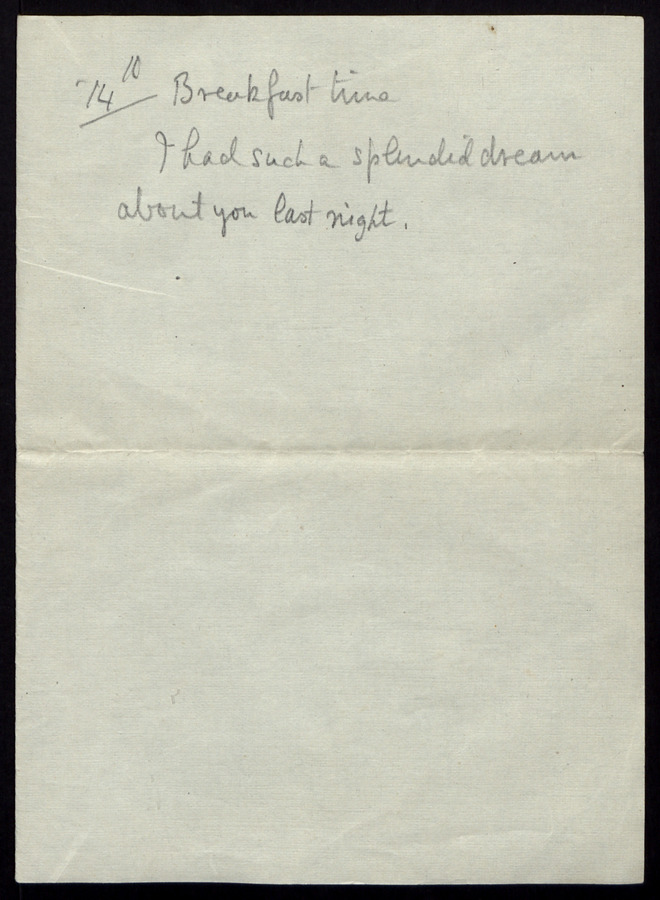 14/10 Breakfast time
I had such a splendid dream
about you last night.